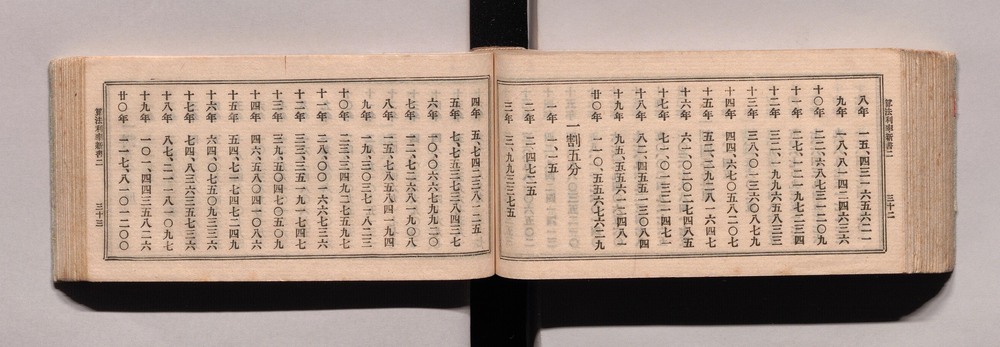 算法利率新書二 三十二
八年 一五、四三一六五六二一
九年 一八、八一四二四六三六
十〇年 二二、六八七三一二〇九
十一年 二七、一二一九七二三四
十二年 三二、一九九六五八三三
十三年 三八、〇一三六〇八七九
十四年 四四、六七〇五八二〇七
十五年 五二、二九二八一六四七
十六年 六一、〇二〇二七四八五
十七年 七一、〇一三二一四七一
十八年 八二、四五五一三〇八四
十九年 九五、五五六一二四八一
廿〇年 一一〇、五五六七六二九
一割五分
一年 一、一五
二年 二、四七二五
三年 三、九九三三七五
四年 五、七四二三八一二五
五年 七、七五三七三八四三七
六年 一〇、〇六六七九九二〇
七年 一二、七二六八一九〇八
八年 一五、七八五八四一九四
九年 一九、三〇三七一八二三
十〇年 二三、三四九二七五九七
十一年 二八、〇〇一六六七三六
十二年 三三、三五一九一七四七
十三年 三九、五〇四七〇五〇九
十四年 四六、五八〇四一〇八六
十五年 五四、七一七四七二四九
十六年 六四、〇七五〇九三三六
十七年 七四、八三六三五七三六
十八年 八七、二一一八一〇九七
十九年 一〇一、四四三五八二六
廿〇年 一一七、八一〇一二〇〇
算法利率新書二 三十三